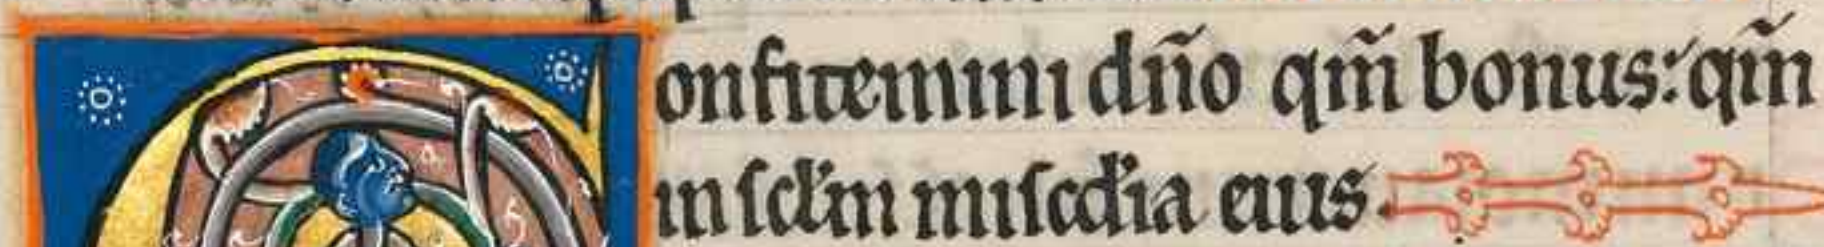 Confitemini dn̄o qm̄ bonus: qm̄
in scl̄m mis̄cdia eius.